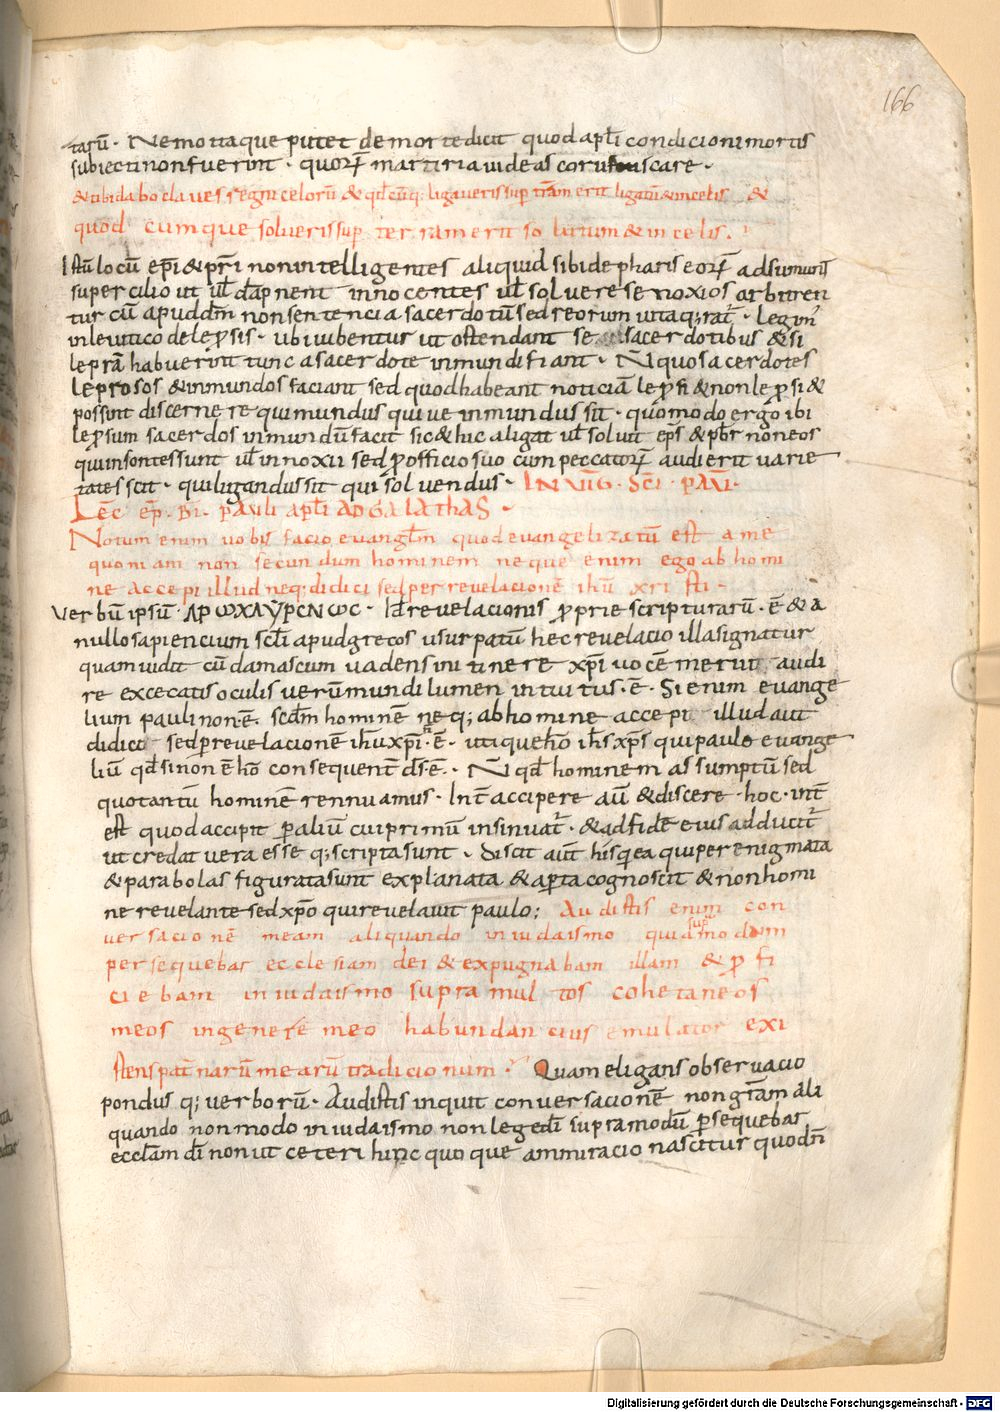 166
tarū · Nemo itaque putet de morte dicit quod apl̄i condicioni mortis
subiecti non fuerint · quorꝝ martiria uideas coruscare ·
& tibi dabo claues regni celorū & qd̄cūq; ligaueris sup trā erit ligatū & in celis &
quod cumque solueris sup terram erit solutum & in celis.
Istū locū ep̄i & pr̄i non intelligentes aliquid sibi de phariseorꝝ adsumunt
supercilio ut ul̄ dāpnent innocentes ul̄ soluere se noxios arbitren
tur cū apud dm̄ non sentencia sacerdotū sed reorum uita q;rat̄ · Legim̄
in leuitico de leꝓsis · ubi iubentur ut ostendant se sacerdotibus & si
leprā habuerint tunc a sacerdote inmundi fiant · N̄ quo sacerdotes
leprosos & inmundos faciant sed quod habeant noticiā leꝓsi & non leꝓsi &
possint discernere qui mundus qui ue inmundus sit · quomodo ergo ibi
leꝓsum sacerdos inmundū facit sic & hic aligat ul̄ soluit ep̄s & pbr̄ non eos
qui insontes sunt ul̄ innoxii sed ꝓ officio suo cum peccatorꝝ audierit uarie
tates scit · qui ligandus sit qui soluendus · IN UIĪG · SC̄I · PAŪI ·
Lec̄ ep̄ · Bī · pauli apl̄i AD GALATHAS ·
Notum enim uobis facio euanglīm quod euangelizatū est a me
quoniam non secundum hominem neque enim ego ab homi
ne accepi illud neq; didici sed per reuelacionē ihū xristi ·
Verbū ipsū · ΑΡΩΧΑΛΥΡCΝΩC · Id ē reuelacionis ꝓprie scripturarū · ē & a
nullo sapiencium scl̄i apud grecos usurpatū hec reuelacio illa signatur
quam uidit cū damascum uadens in itinere xp̄i uocē meruit audi
re excecatis oculis uerū mundi lumen intuitus · ē · Si enim euange
lium pauli non · ē · scdm̄ hominē neq; ab homine accepit illud aut
didicit sed p reuelacionē ihū xp̄i · ē · utique hō ihs̄ xp̄s qui paulo euange
liū qd̄ si non ē hō consequent̄ ds̄ · ē · N̄ qd̄ hominem assumptū sed
quo tantū hominē rennuamus · Int̄ accipere aū & discere · hoc · int̄
est quod accipit p aliū cui primū insinuat̄ · & ad fidē eius adducit̄
ut credat uera esse q; scripta sunt · discit aūt his q ea qui per enigmata
& parabolas figurata sunt explanata & apta cognoscit & non homi
ne reuelante sed xp̄o qui reuelauit paulo; Audistis enim con
uersacionē meam aliquando in iudaismo quia sup modum
persequebar ecclesiam dei & expugnabam illam & ꝓfi
ciebam in iudaismo supra multos cohetaneos
meos in genere meo habundancius emulator exi
stens pat̄narū mearū tradicionum · Quam eligans obseruacio
pondusq; uerborū · Audistis inquit conuersacionē non grām ali
quando non modo in iudaismo non lege dī supra modū psequebar
eccl̄am dī non ut ceteri hinc quoque ammiracio nascitur quod n̄
Digitalisierung gefördert durch die Deutsche Forschungsgemeinschaft - DFG